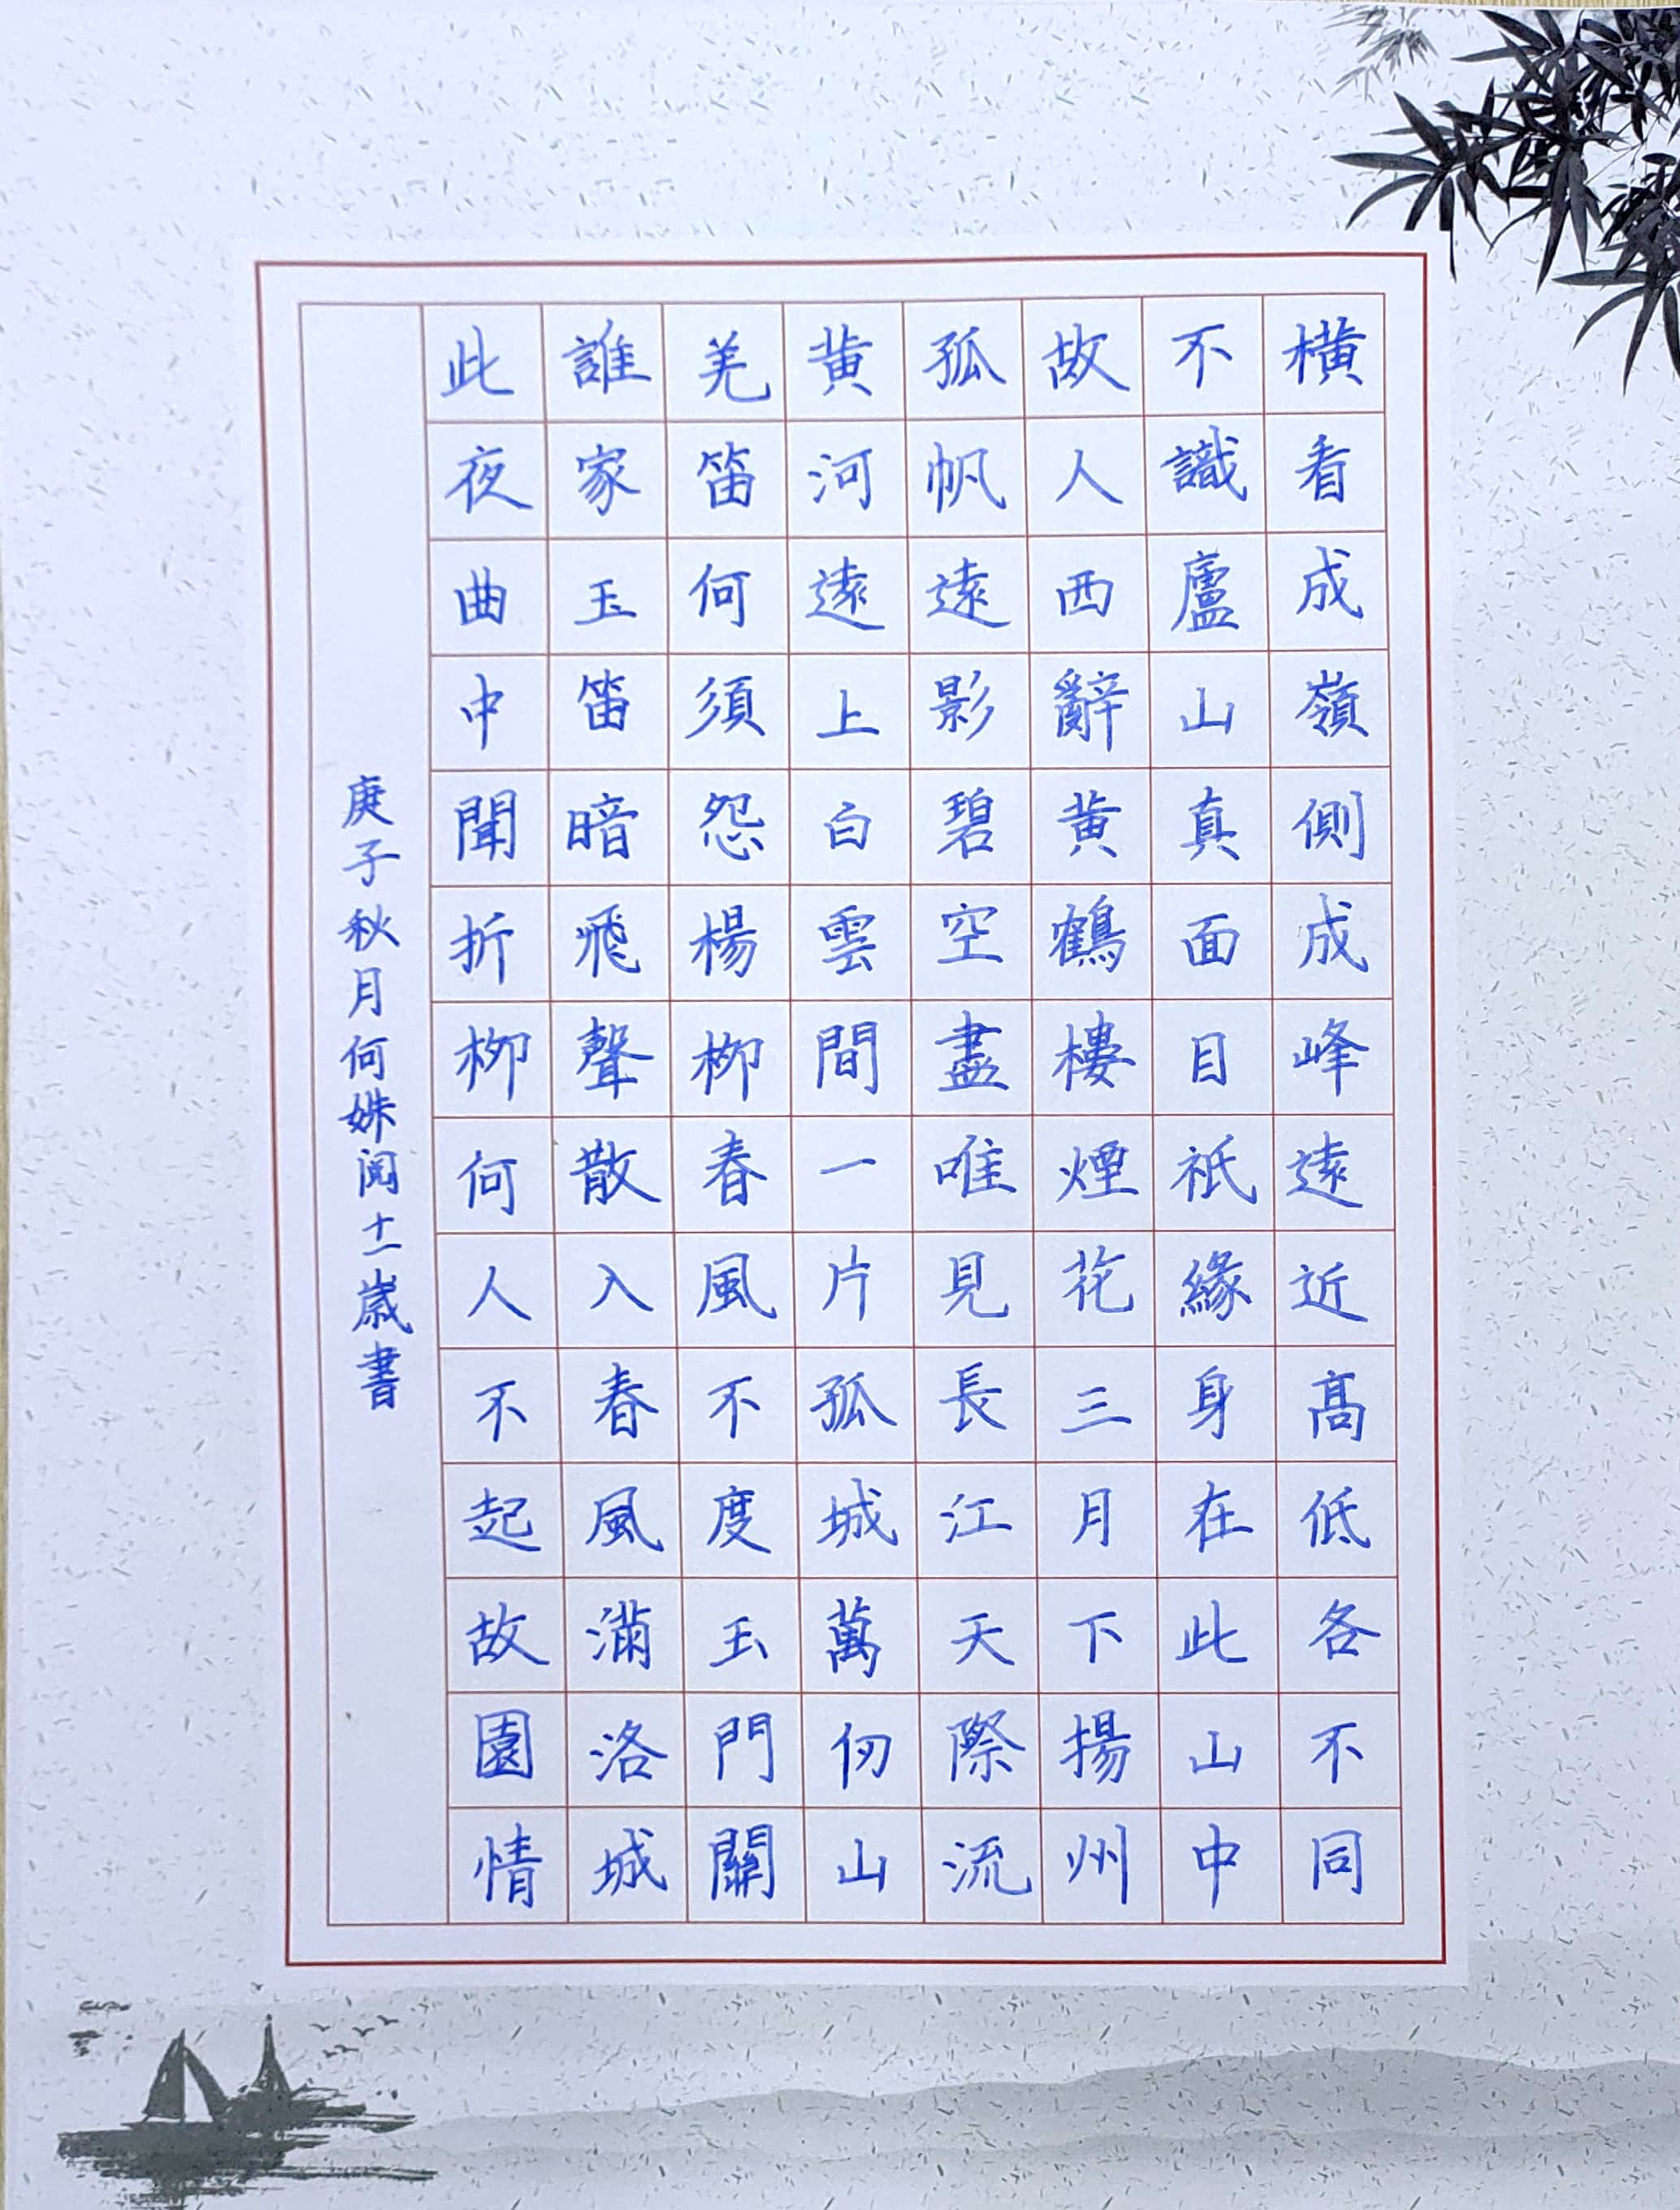 橫看成嶺側成峰遠近高低各不同
不識廬山真面目祇緣身在此山中
故人西辭黃鶴樓煙花三月下揚州
孤帆遠影碧空盡唯見長江天際流
黃河遠上白雲間一片孤城萬仞山
羌笛何須怨楊柳春風不度玉門關
誰家玉笛暗飛聲散入春風滿洛城
此夜曲中聞折柳何人不起故園情
庚子秋月何姝闵十一歲書